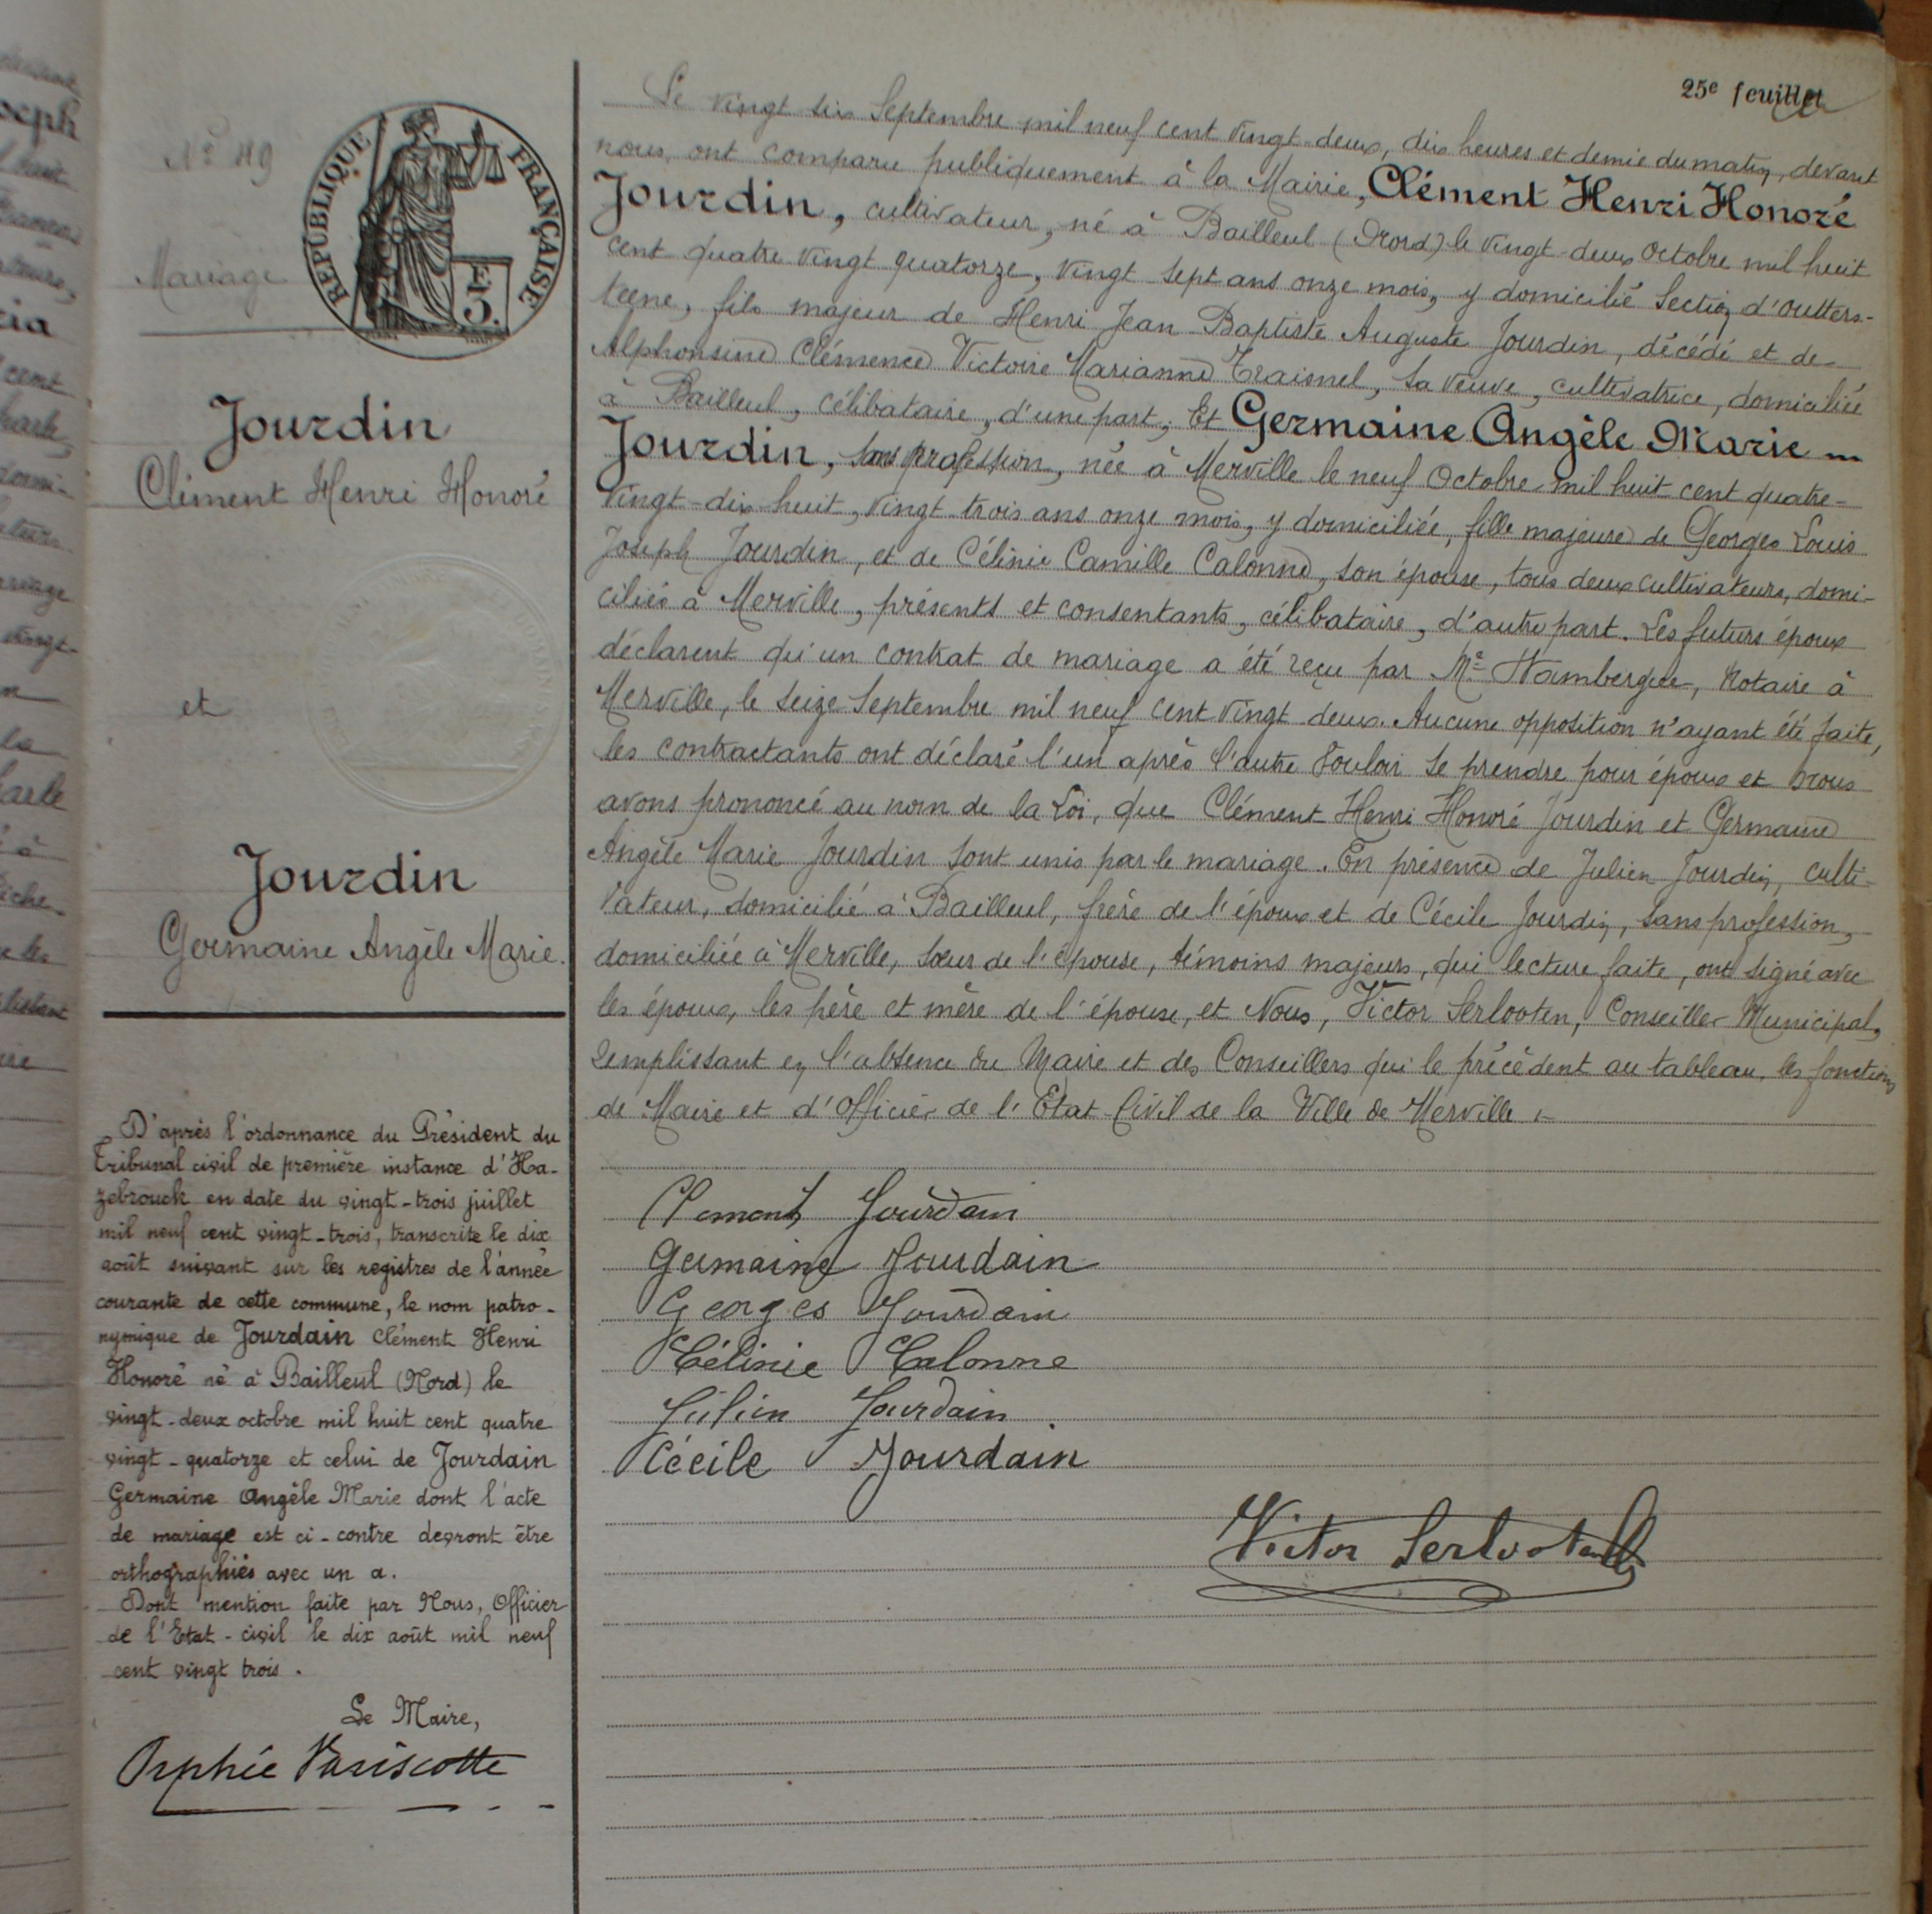 25e feuillet
N° 49
RÉPUBLIQUE FRANÇAISE
5F.
Mariage
Jourdin
Clément Henri Honoré
et
Jourdin
Germaine Angèle Marie.
D'après l'ordonnance du Président du
Tribunal civil de première instance d'Ha-
zebrouck en date du vingt-trois juillet
mil neuf cent vingt-trois, transcrite le dix
août suivant sur les registres de l'année
courante de cette commune, le nom patro-
nymique de Jourdain Clément Henri
Honoré né à Bailleul (Nord) le
vingt-deux octobre mil huit cent quatre
vingt-quatorze et celui de Jourdain
Germaine Angèle Marie dont l'acte
de mariage est ci-contre devront être
orthographiés avec un a.
Dont mention faite par Nous, Officier
de l'Etat-civil le dix août mil neuf
cent vingt trois.
Le Maire,
Orphée Variscotte
Le vingt six Septembre mil neuf cent vingt-deux, dix heures et demie du matin, devant
nous, ont comparu publiquement à la Mairie, Clément Henri Honoré
Jourdin, cultivateur, né à Bailleul (Nord) le vingt-deux Octobre mil huit
cent quatre vingt quatorze, vingt sept ans onze mois, y domicilié Section d'Outters-
teene, fils majeur de Henri Jean Baptiste Auguste Jourdin, décédé et de
Alphonsine Clémence Victoire Marianne Traisnel, sa veuve, cultivatrice, domiciliée
à Bailleul, célibataire, d'une part; Et Germaine Angèle Marie
Jourdin, sans profession, née à Merville le neuf Octobre mil huit cent quatre-
vingt-dix huit, vingt-trois ans onze mois, y domiciliée, fille majeure de Georges Louis
Joseph Jourdin, et de Célinie Camille Calonne, son épouse, tous deux cultivateurs, domi-
ciliés à Merville, présents et consentants, célibataire, d'autre part. Les futurs époux
déclarent qu'un contrat de mariage a été reçu par Me Wambergue, Notaire à
Merville, le seize Septembre mil neuf cent vingt deux. Aucune opposition n'ayant été faite,
les contractants ont déclaré l'un après l'autre vouloir se prendre pour époux et nous
avons prononcé au nom de la Loi, que Clément Henri Honoré Jourdin et Germaine
Angèle Marie Jourdin sont unis par le mariage. En présence de Julien Jourdin, culti-
vateur, domicilié à Bailleul, frère de l'époux et de Cécile Jourdin, sans profession,
domiciliée à Merville, sœur de l'épouse, témoins majeurs, qui lecture faite, ont signé avec
les époux, les père et mère de l'épouse, et Nous, Victor Serlooten, Conseiller Municipal,
remplissant en l'absence du Maire et des Conseillers qui le précèdent au tableau, les fonctions
de Maire et d'Officier de l'Etat-Civil de la Ville de Merville.
Clement Jourdain
Germaine Jourdain
Georges Jourdain
Célinie Calonne
Julien Jourdain.
Cécile Jourdain
Victor Serlooten